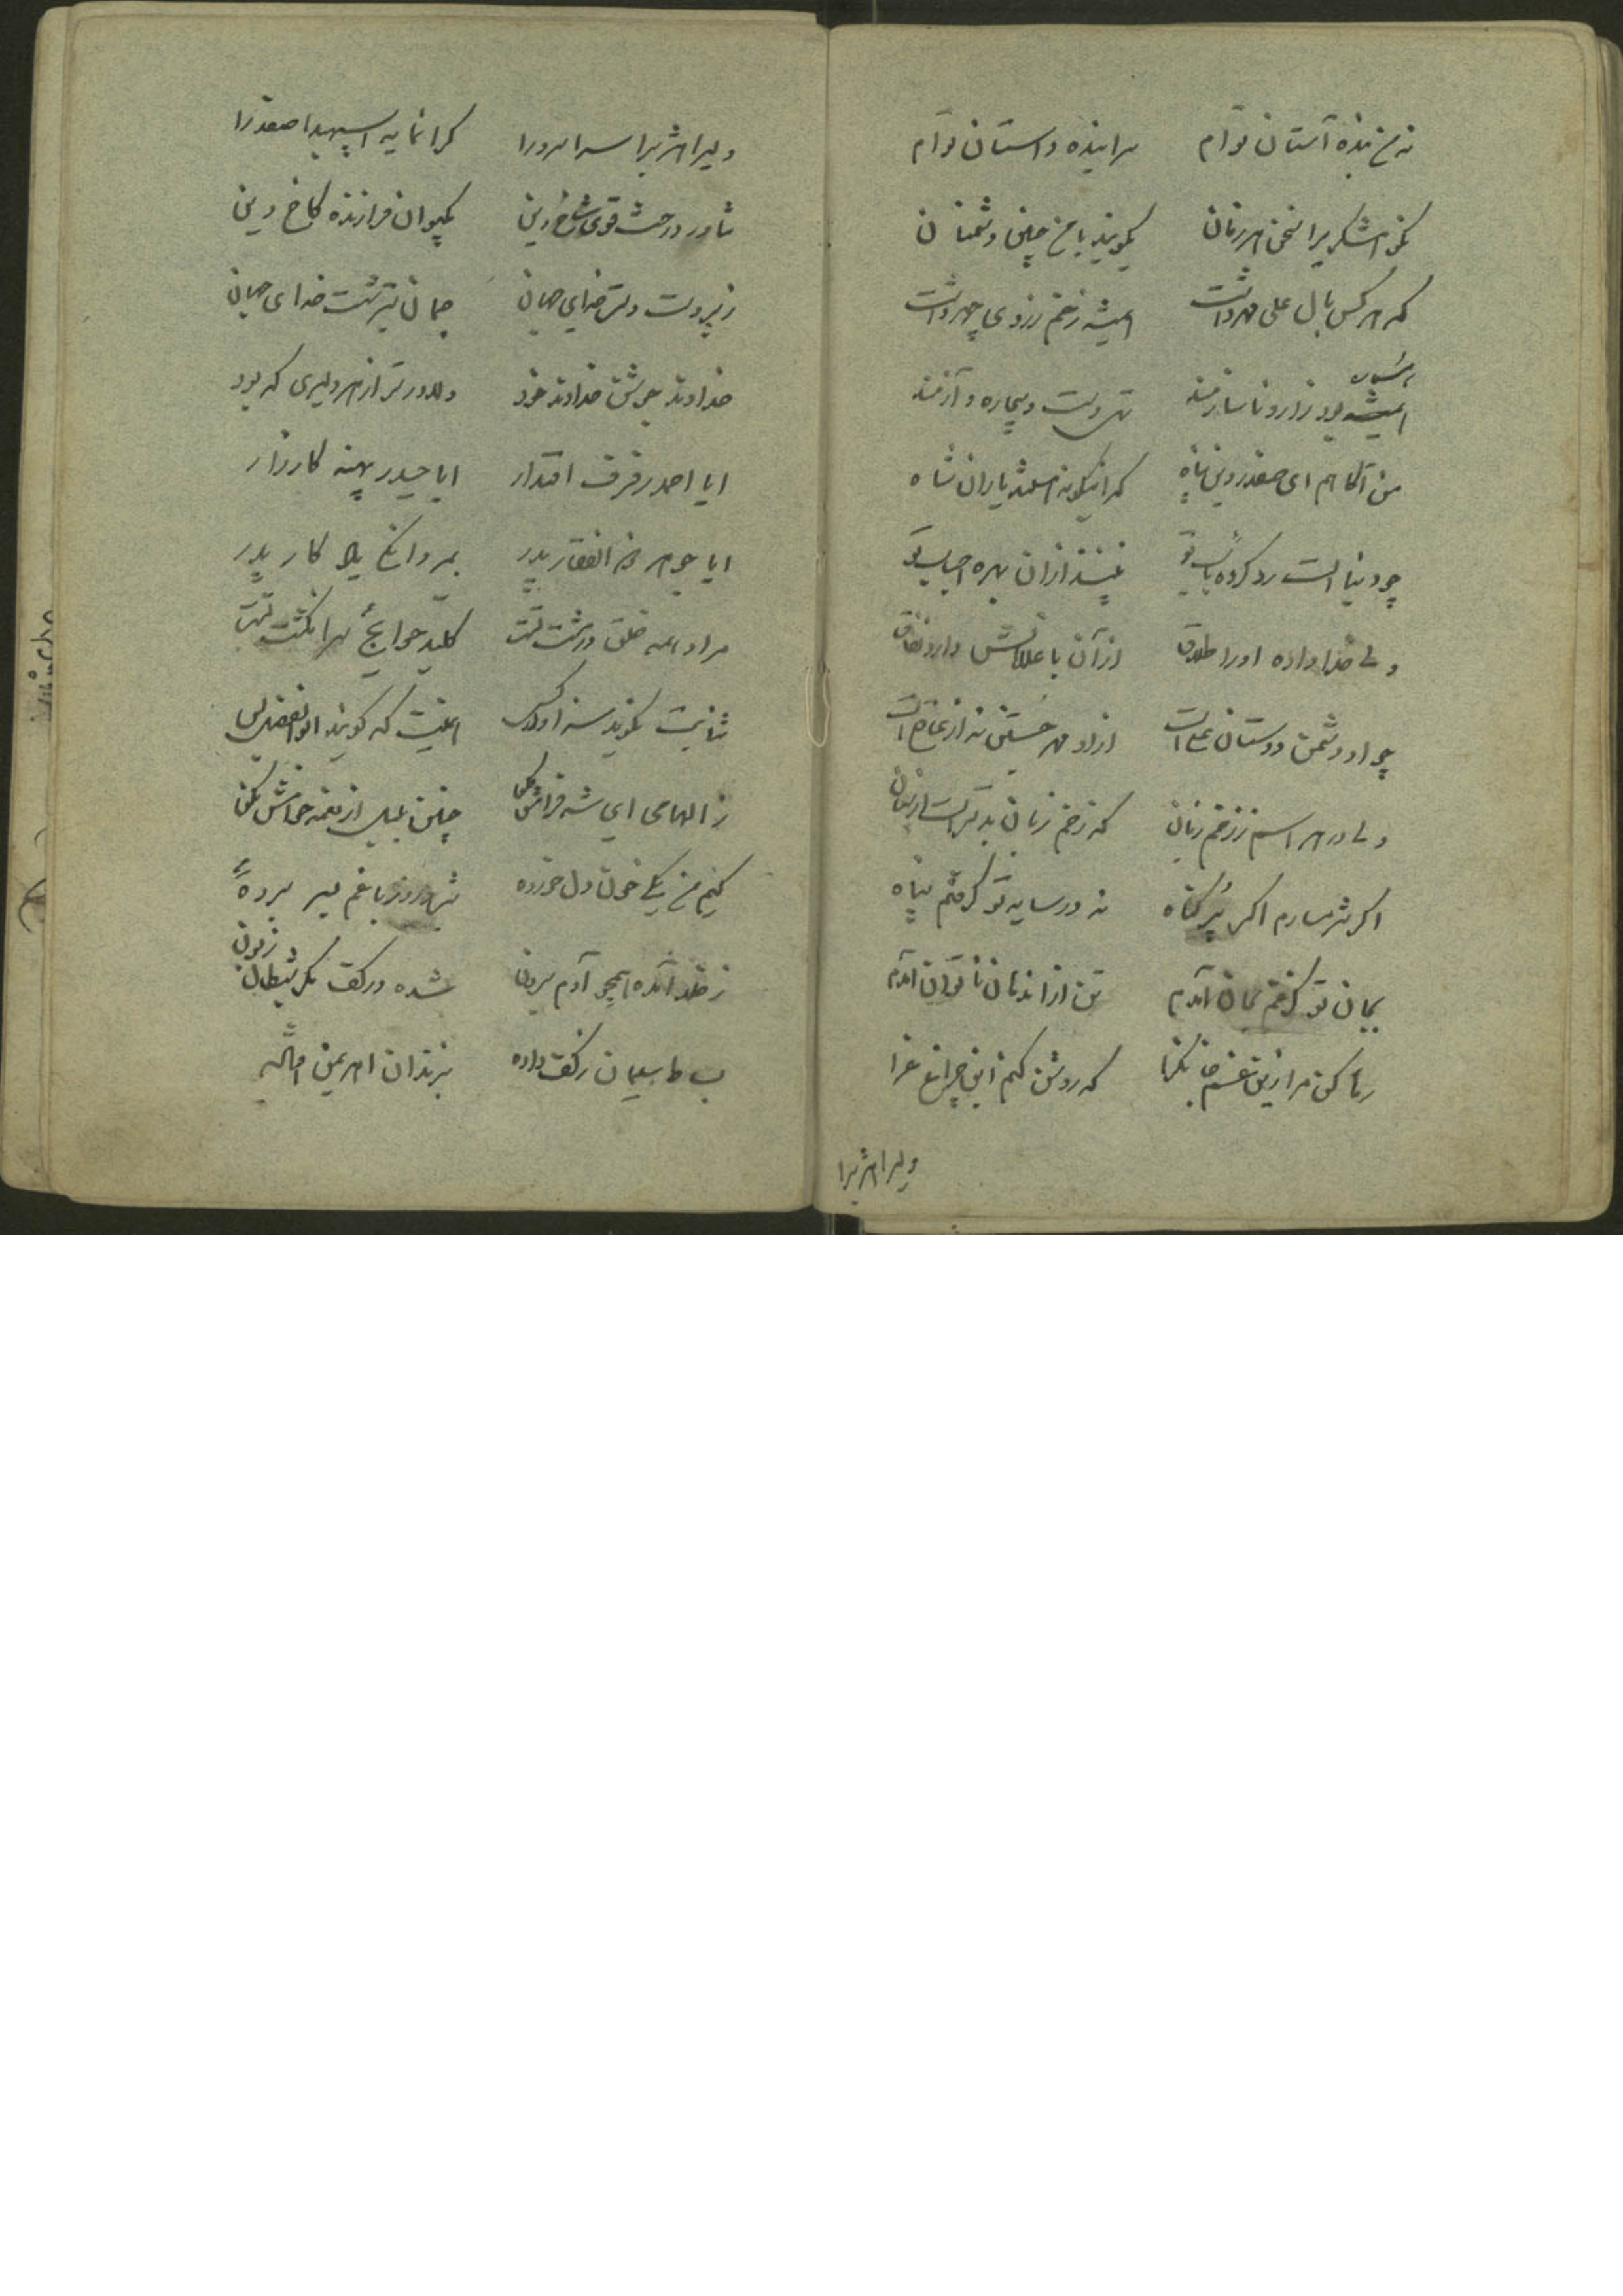 نه من بنده آستان توام سراینده داستان توام
که هر کس بال علی مهر داشت همیشه زغم زردی چهر داشت
همیشه بود زار و ناسازمند تهی دست و بیچاره و آزمند
من آگاهم ای صفدر دین پناه که اینگونه هستند یاران شاه
چو دنیا است رد کرده باب تو نبیند ازان بهره احباب تو
ولی خدا داده او را طلاق ازان با غلامانش دارد نفاق
چو او دشمن دوستان علی است
ولی در هراسم ز زخم زبان که زخم زبان بدتر است از سنان
اگر شرمسارم اگر پر گناه نه در سایه تو گرفتم پناه
بمان تو گرفتم بمان آمدم تن از اندهان ناتوان آمدم
رها کن مرا زین غم جانگزا که روشن کنم این چراغ عزا
دلیرا هژبرا
دلیرا هژبرا سرا سرورا گرانمایه اسپهبدا صفدرا
تناور درخت قوی شاخ دین بکیوان فرازنده کاخ دین
زبردست دست خدای جهان جمال تیر شست خدای جهان
خداوند جوشن خداوند خود دلاورتر از هر دلیری که بود
ایا احمد رفرف اقتدار ایا حیدر پهنه کارزار
ایا جوهر ذوالفقار پدر بمردانگی یادگار پدر
مراد همه خلق در مشت تست کلید حوایج سرانگشت تست
ثنایت نگوید سزاوار کس همینت که گویند ابوالفضل بس
ز الهامی ای شه فرامش مکن چنین بلبلی از نغمه خامش مکن
کیم من یکی خون دل خورده شب و روز با غم بسر برده
ز خلد آمده همچو آدم برون شده در کف مکر شیطان زبون
بساط سلیمان ز کف داده بزندان اهریمن افتاده